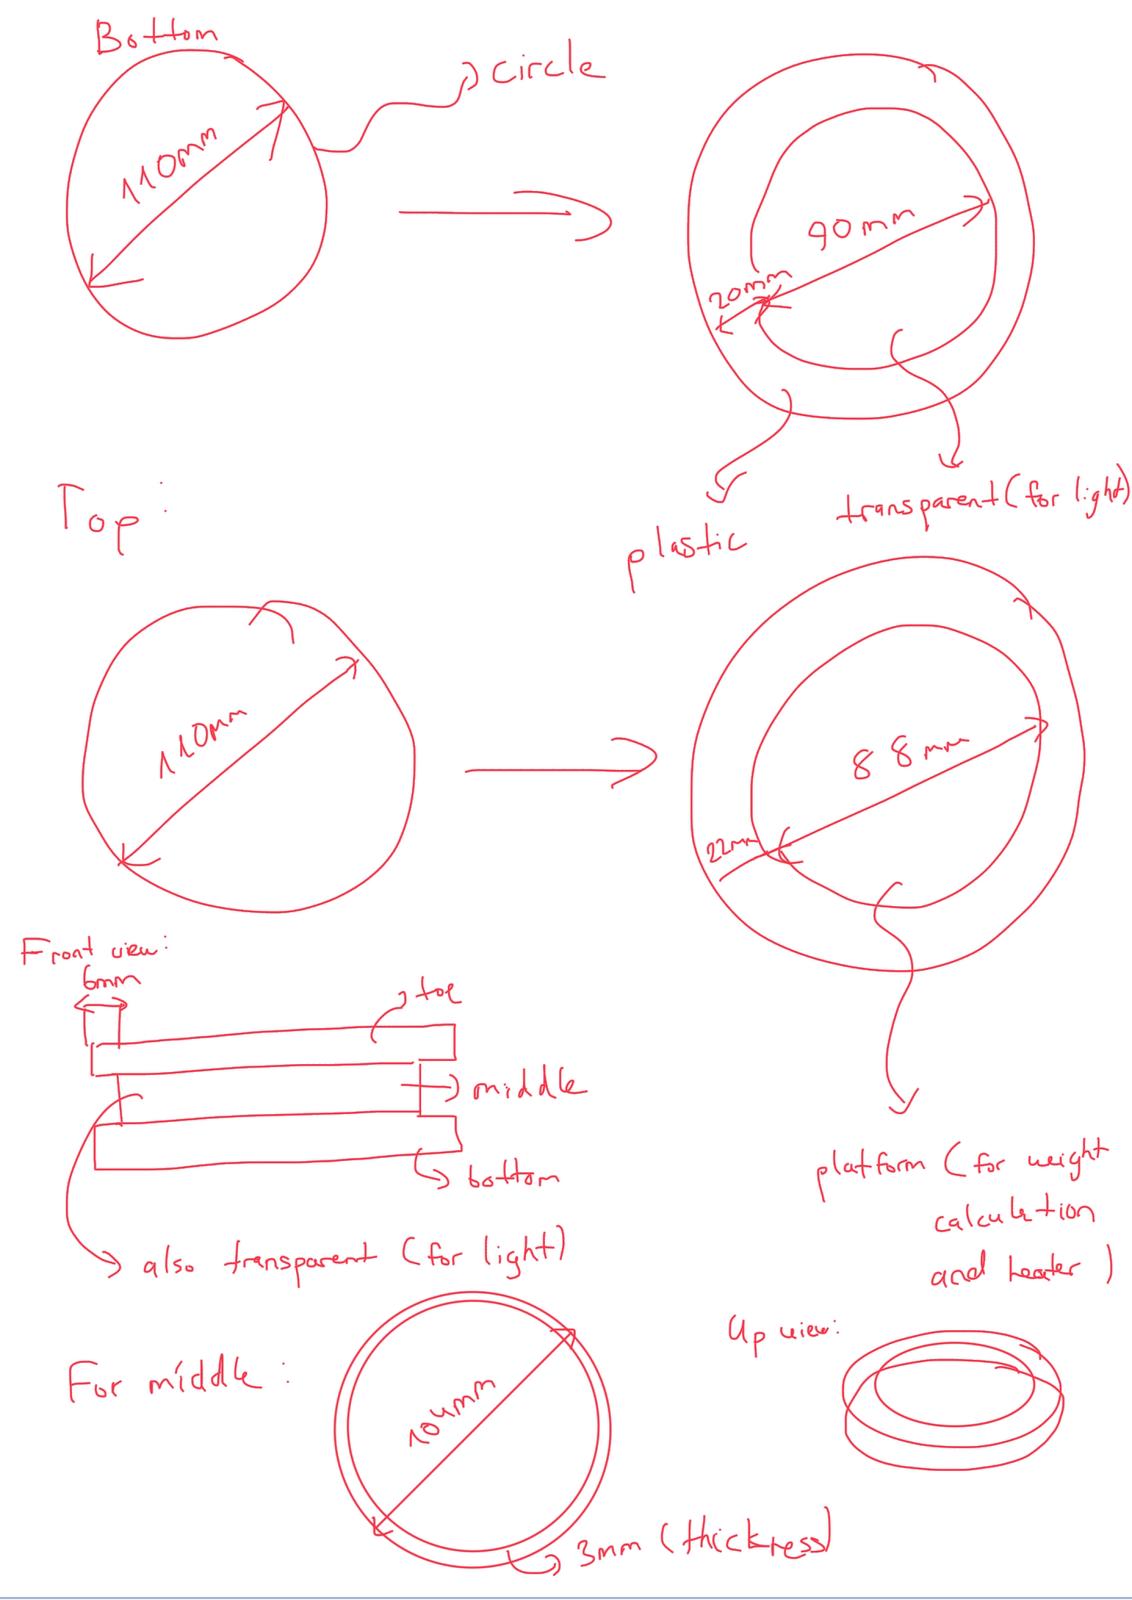 Bottom
Circle
110mm
90mm
20mm
plastic
transparent (for light)
Top :
110mm
88mm
22mm
Front view:
6mm
top
middle
bottom
also transparent (for light)
platform (for weight
calculation
and heater)
Up view:
For middle :
104mm
3mm (thickness)